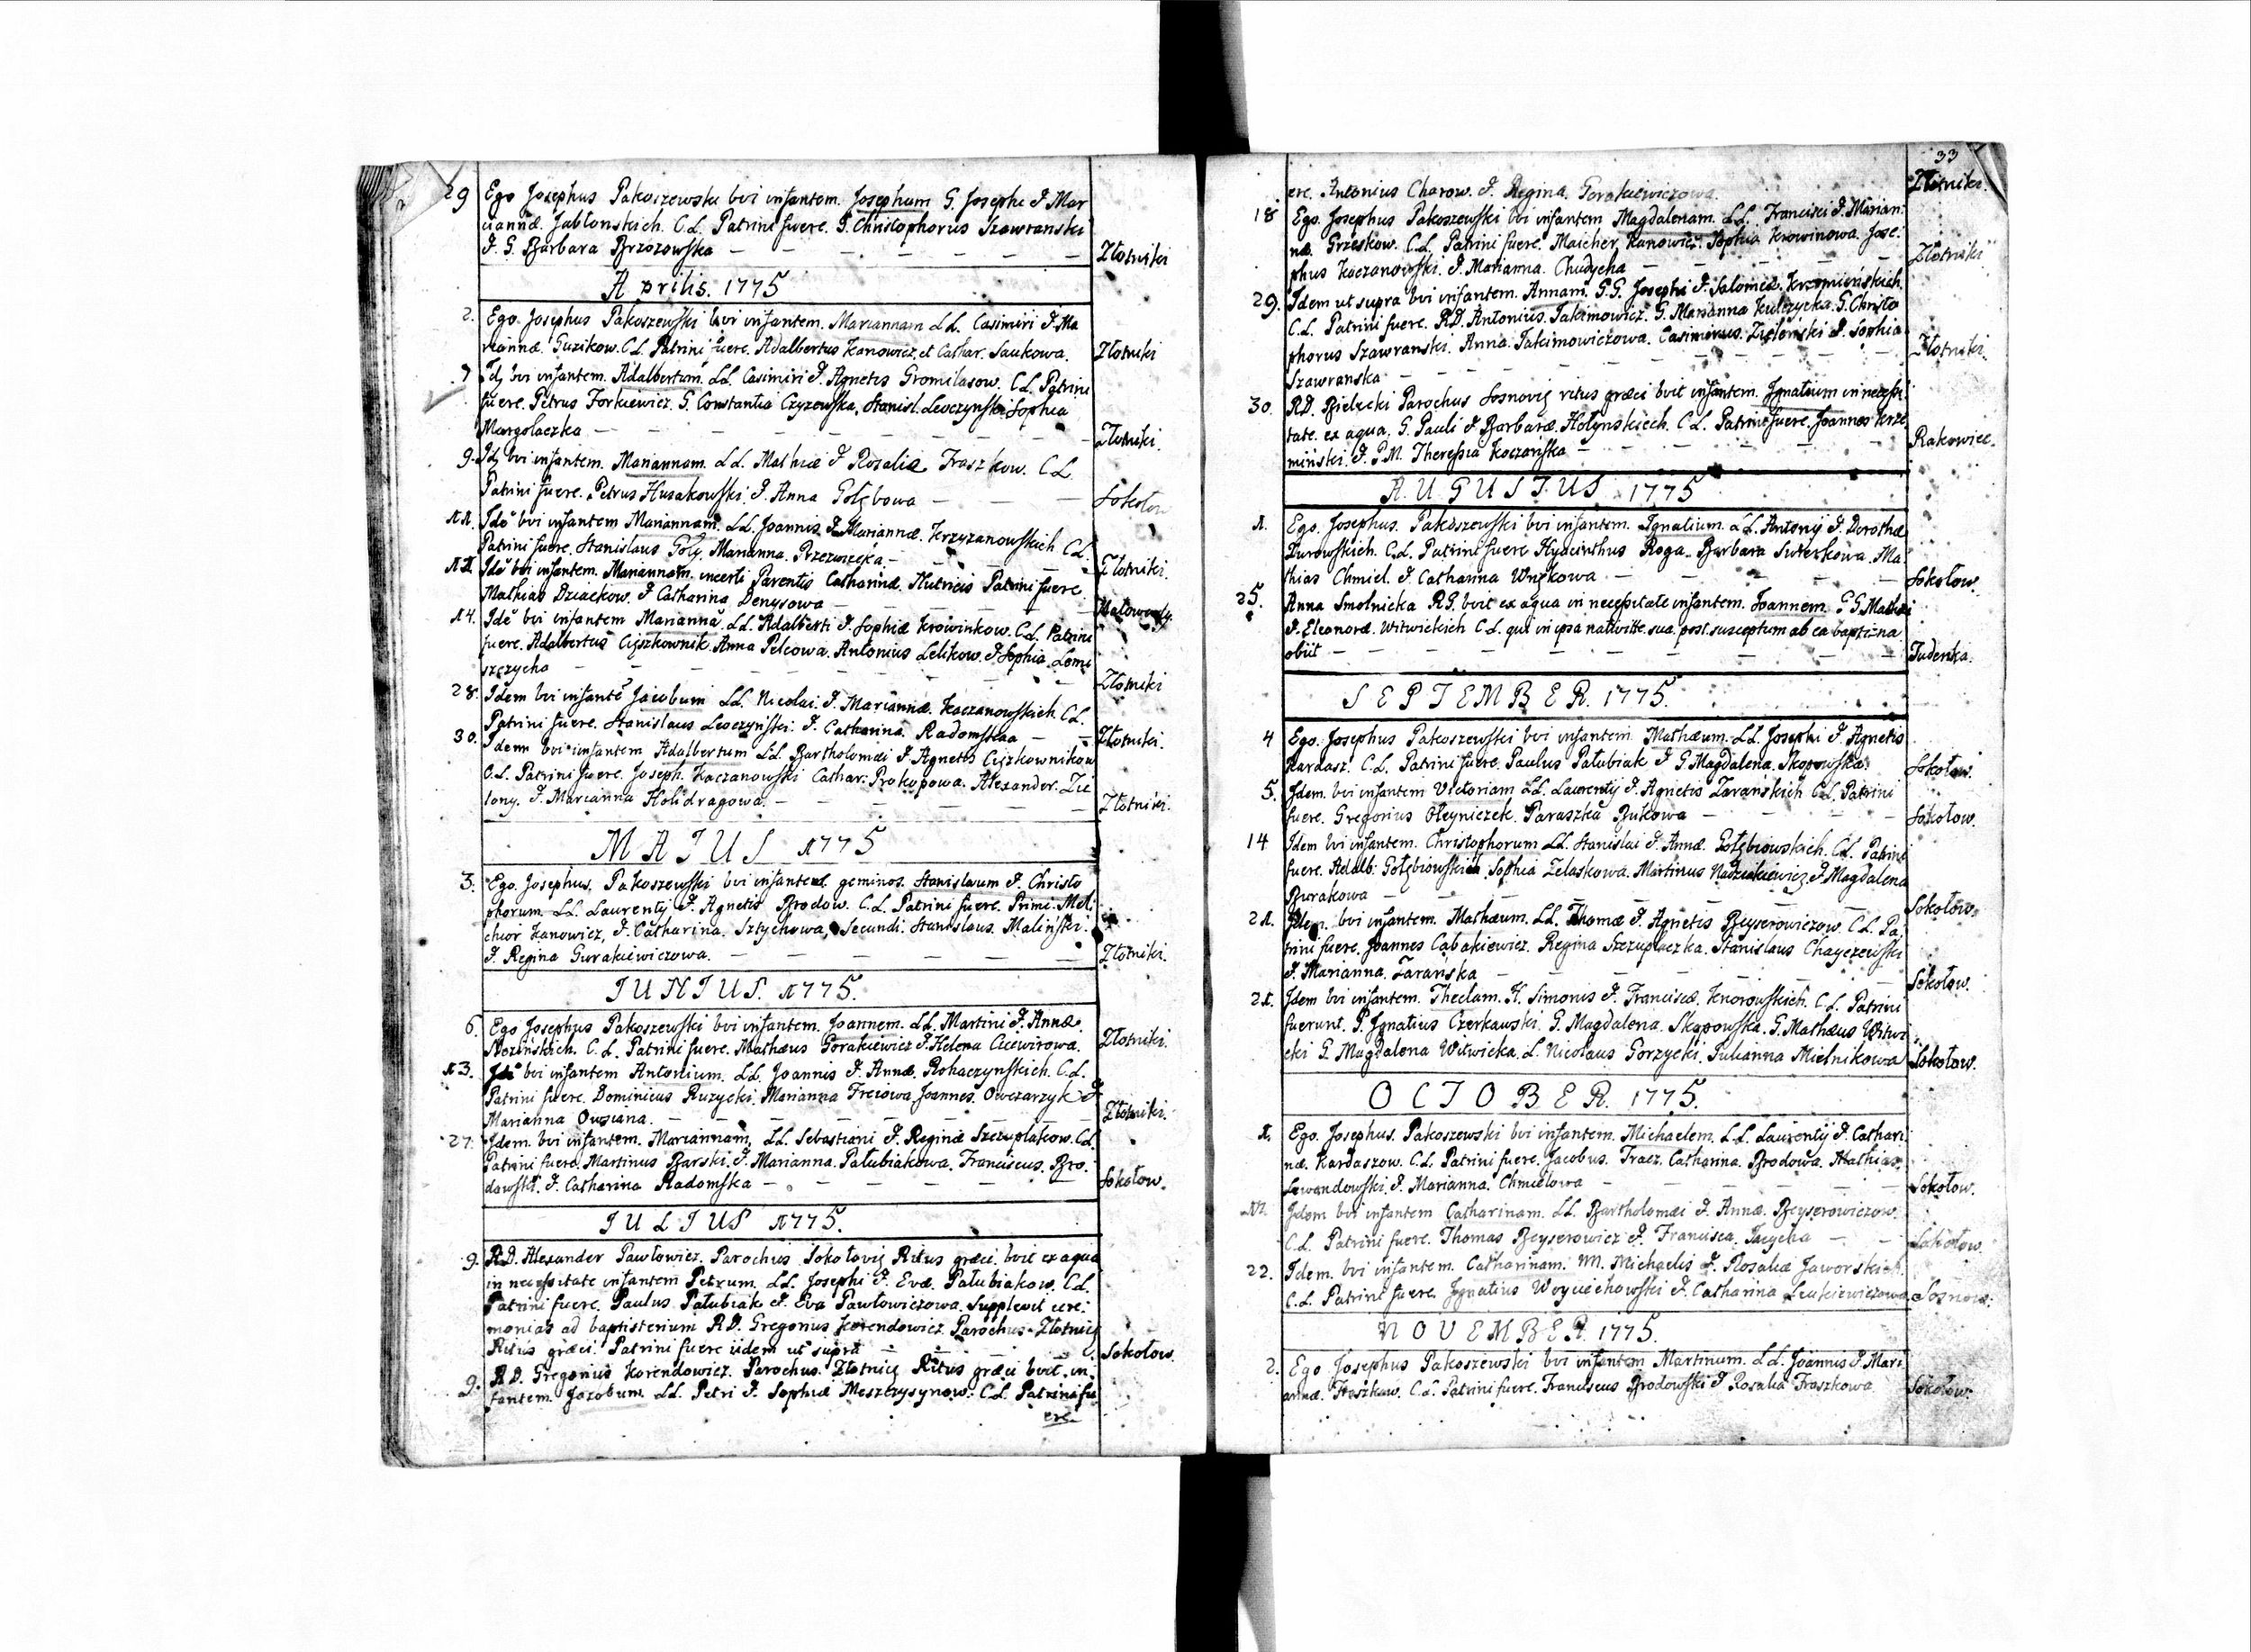 29 Ego Josephus Pakoszewski bvi infantem Josephum G. Josephi & Mar
iannæ Jabłonskich. C.L. Patrini fuere. G. Christophorus Szawranski
& G. Barbara Brzozowska — Złotniki
Aprilis. 1775
2. Ego Josephus Pakoszewski bvi infantem. Mariannam LL. Casimiri & Ma
riannæ. Guzikow. C.L. Patrini fuere. Adalbertus Kanowicz, et Cathar. Saukowa. Złotniki
7 Idq bvi infantem. Adalbertum. LL. Casimiri & Agnetis Gromilasow. C.L. Patrini
fuere. Petrus Torkiewicz. G. Constantia Czyzewska, Stanisl. Lewczynski Sophia
Margolaczka — Złotniki.
9. Idq bvi infantem. Mariannam. LL. Mathiæ & Rosaliæ Fraszkow. C.L.
Patrini fuere. Petrus Husakowski. & Anna Gołębowa — Sokołow
11. Idē bvi infantem Mariannam. LL. Joannis. & Mariannæ. Krzyzanowskich C.L.
Patrini fuere. Stanislaus Goły, Marianna. Przezwięka. — Złotniki.
12. Idē bvi infantem. Mariannam. incerti Parentis Catharinæ. Nutricis Patrini fuere
Mathias Dziackow. & Catharina Denysowa —
14. Idē bvi infantem Mariannā. LL. Adalberti & Sophiæ Krowinkow. C.L. Patrini
fuere. Adalbertus Ciszkownik. Anna Pelcowa. Antonius Lelikow. & Sophia. Lomi
szczycha — Złotniki
28. Idem bvi infantē Jacobum LL. Nicolai. & Mariannæ. Kaczanowskich. C.L.
Patrini fuere. Stanislaus Lewczynski. & Catharina. Radomskaa — Złotniki.
30. Idem bvi infantem Adalbertum LL. Bartholomæi & Agnetis Ciszkownikow
C.L. Patrini fuere. Joseph. Kaczanowski Cathar: Prokopowa. Alexander. Zie
lony. & Marianna Holidragowa. — Złotniki.
MAJUS 1775
3. Ego. Josephus. Pakoszewski bvi infantes. geminos. Stanislaum & Christo
phorum. LL. Laurentij & Agnetis Brodow. C.L. Patrini fuere. Primi. Mel
chior Kanowicz, & Catharina. Sztychowa, Secundi: Stanislaus. Malinski.
& Regina Gurakiewiczowa. — Złotniki.
JUNIUS. 1775.
6. Ego Josephus Pakoszewski bvi infantem. Joannem. LL. Martini & Annæ.
Nozinskich. C.L. Patrini fuere. Mathæus Gorakiewicz & Helena Cicewirowa. Złotniki.
13. Idē bvi infantem Antonium. LL. Joannis & Annæ. Rohaczynskich. C.L.
Patrini fuere. Dominicus Ruzycki. Marianna Freiowa Joannes. Owczarzyk &
Marianna Owsiana. — Złotniki.
27. Idem. bvi infantem. Mariannam. LL. Sebastiani & Reginæ Szczuplakow. C.L.
Patrini fuere. Martinus Barski. & Marianna. Pałubiakowa. Franciscus. Bro.
dowski. & Catharina Radomska — Sokołow.
JULIUS 1775.
9. RD. Alexander Pawłowicz. Parochus Sokołovię Ritus græci. bvit ex aqua
in necessitate infantem Petrum. LL. Josephi & Evæ. Pałubiakow. C.L.
Patrini fuere. Paulus. Pałubiak & Eva Pawłowiczowa. Supplevit cere:
monias ad baptisterium RD. Gregorius Korendowicz Parochus Złotnicę
Ritus græci. Patrini fuere iidem ut supra — Sokołow.
9. RD. Gregorius Korendowicz. Parochus. Złotnicę Ritus græci bvit. in
fantem. Jacobum LL. Petri & Sophiæ Meszczysynow. C.L. Patrini fu
ere.
33
ere. Antonius Charow. & Regina. Gorakiewiczowa. Złotniki.
18 Ego Josephus Pakoszewski bvi infantem Magdalenam. LL. Francisci & Marian:
næ. Grzeskow. C.L. Patrini fuere. Maicher Kanowicz. Sophia Krowinowa. Jose:
phus Kaczanowski. & Marianna. Chudycha — Złotniki
29. Idem ut supra bvi infantem. Annam. G.G. Josephi & Salomeæ. Krzeminskich.
C.L. Patrini fuere. RD. Antonius. Jakimowicz. G. Marianna Kulczycka. G. Christo
phorus Szawranski. Anna. Jakimowiczowa. Casimirus. Zielonski & Sophia
Szawranska — Złotniki.
30. RD. Bielecki Parochus Sosnovię ritus græci bvit infantem. Ignatium in necessi
tate. ex aqua. G. Pauli & Barbaræ. Hołynskiech. C.L. Patrini fuere. Joannes Krze
minski. & PM. Theressia Koczańska — Rakowiec.
AUGUSTUS 1775
1. Ego. Josephus. Pakoszewski bvi infantem. Ignatium. LL. Antonij & Dorothæ
Zurowskich. C.L. Patrini fuere Hyacinthus Roga. Barbara Swiezkowa. Ma
thias Chmiel. & Catharina Wnękowa — Sokołow.
25. Anna Smolnicka RG. bvit ex aqua in necessitate infantem. Joannem. G G. Mathæi
& Eleonoræ. Witwickich C.L. qui in ipsa nativitte sua. post. susceptum ab ea baptizma
obiit — Judenka.
SEPTEMBER. 1775.
4 Ego. Josephus Pakoszewski bvi infantem. Mathæum. LL. Josephi & Agnetis
Kardasz. C.L. Patrini fuere. Paulus Pałubiak & G. Magdalena. Skopowska. Sokołow.
5. Idem. bvi infantem Victoriam LL. Laurentij & Agnetis Zaranskich C.L. Patrini
fuere. Gregorius Oleyniczek. Paraszka Bukowa — Sokołow.
14 Idem bvi infantem. Christophorum LL. Stanislai & Annæ. Gołębiowskich. C.L. Patrini
fuere. Adalb. Gołębiowskich. Sophia Zelaskowa. Martinus Nadziakiewicz & Magdalena
Burakowa — Sokołow.
21. Idem. bvi infantem. Mathæum. LL. Thomæ & Agnetis Beyserowiczow. C.L. Pa:
trini fuere. Joannes Cabakiewicz. Regina Szczuplaczka. Stanislaus Chayczewski
& Marianna. Zaranska — Sokołow.
21. Idem bvi infantem. Theclam. H. Simonis & Franciscæ. Knorowskich. C.L. Patrini
fuerunt. P. Ignatius Czerkawski. G. Magdalena. Skopowska. G. Mathæus Witwi
cki G. Magdalena Witwicka. L. Nicolaus Gorzycki. Julianna Mielnikowa Sokołow.
OCTOBER. 1775.
1. Ego. Josephus. Pakoszewski bvi infantem. Michaelem. LL. Laurentij & Cathari
næ. Kardaszow. C.L. Patrini fuere. Jacobus. Tracz. Catharina. Brodowa. Mathias.
Lewandowski. & Marianna. Chmielowa — Sokołow.
Idem bvi infantem Catharinam. LL. Bartholomæi & Annæ. Beyserowiczow.
C.L. Patrini fuere. Thomas Beyserowicz & Francisca. Jacycha — Sokołow
22. Idem. bvi infantem. Catharinam. M. Michaelis & Rosaliæ Jaworskich.
C.L. Patrini fuere Ignatius Woyciechowski & Catharina Leukiewiczowa. Sosnow:
NOVEMBER. 1775.
2. Ego Josephus Pakoszewski bvi infantem Martinum. LL. Joannis & Mari
annæ. Fraszkow. C.L. Patrini fuere. Franciscus Brodowski & Rosalia Fraszkowa Sokołow.